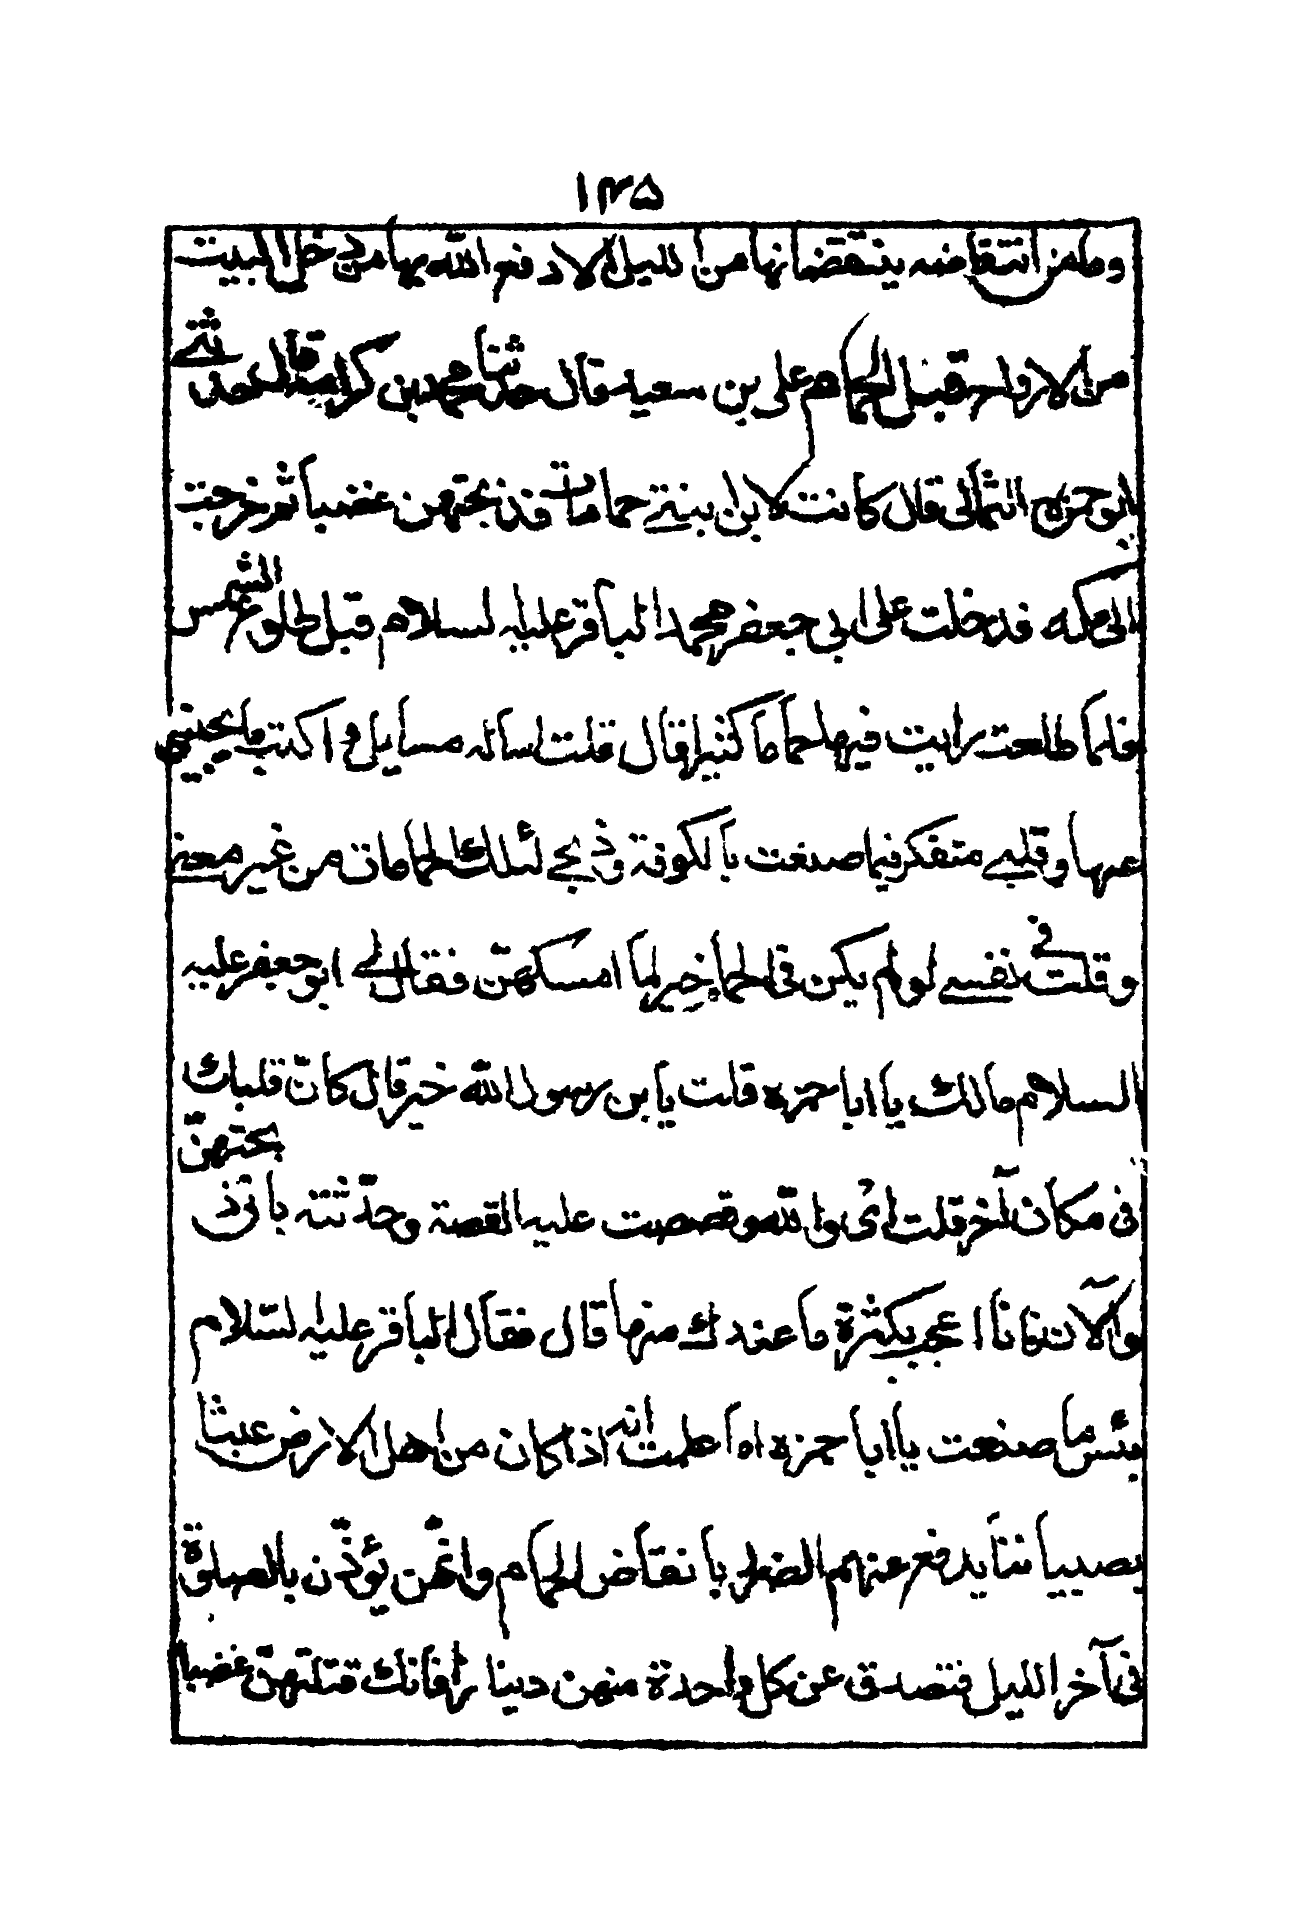 ١٣۵
وما من انتقاضه ينتقضها نها من الليل الا دفع الله بها من دخل البيت
من الارواح قبل الحمام على بن سعيد قال حدثنا محمد بن كرامة قال حدثنى
ابو حمزه الثمالى قال كانت لابن ابنتى حمامات فذبحتهن غضبا ثم خرجت
الى مكه فدخلت على ابى جعفر محمد الباقر عليه السلام قبل طلوع الشمس
فلما طلعت رايت فيها حماما كثيرا قال قلت اساله مسايل و اكتب ما يجيبنى
عنها و قلبى متفكر فيما صنعت بالكوفة و ذبحى لتلك الحمامات من غير معنى
و قلت فى نفسى لو لم يكن فى الحمام خير لما امسكهنّ فقال لى ابو جعفر عليه
السلام مالك يا ابا حمزه قلت يا بن رسول الله خير قال كانّ قلبك
فى مكان آخر قلت اى والله وقصصت عليه القصة وحدّثته بانى ذبحتهنّ
والآن فانا اعجب بكثرة ما عندك منها قال فقال الباقر عليه السّلام
بئس ما صنعت يا ابا حمزه اما علمت انه اذا كان من اهل الارض عبثا
بصبياننا يدفع عنهم الضرر بانتقاض الحمام وانّهن يؤذّن بالصلوة
فى آخر الليل فتصدق عن كل واحدة منهن دينارا فانك قتلتهنّ غضبا